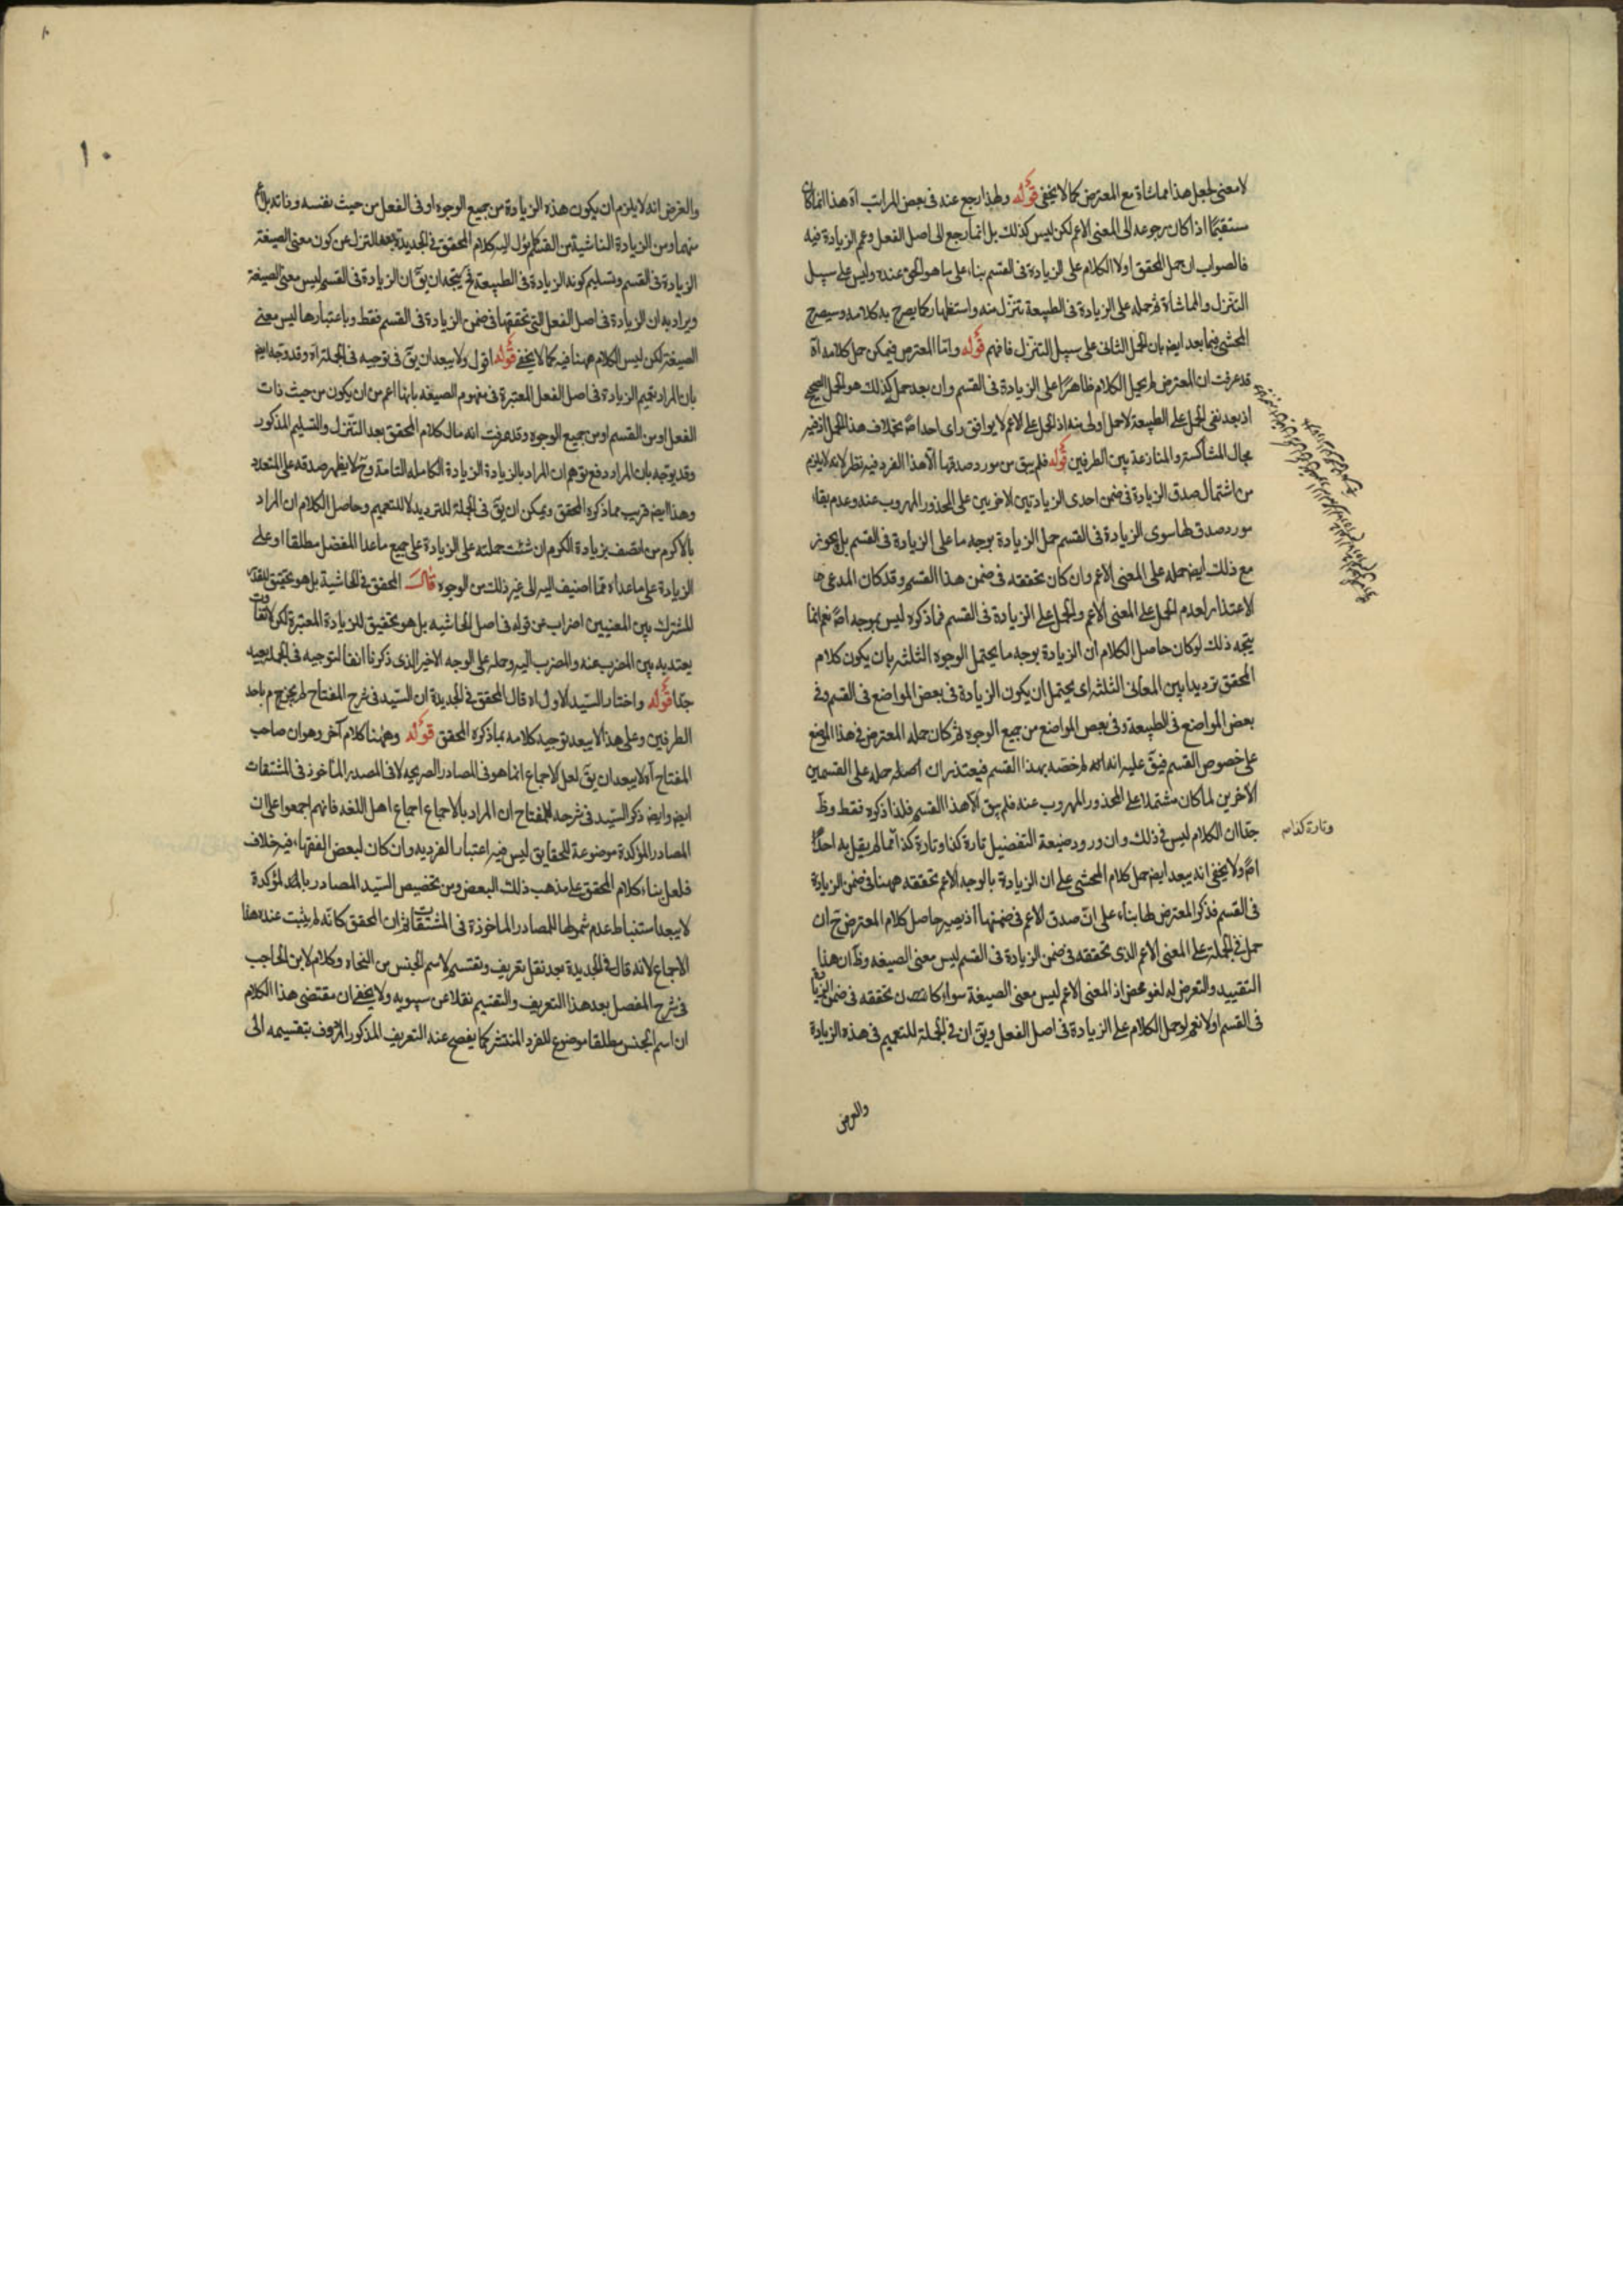 لا معنى لجعل هذا مماشاة مع المعترض كما لا يخفى قوله ولهذا رجع عنه فى بعض المراتب آه هذا انما كان
مستقيما اذا كان رجوعه الى المعنى الاعم لكن ليس كذلك بل انما رجع الى اصل الفعل وعم الزيادة فيه
فالصواب ان حمل المحقق اولا الكلام على الزيادة فى القسم بناء على ما هو الحق عنده وليس على سبيل
التنزل والمماشاة ثم حمله على الزيادة فى الطبيعة تنزل منه واستظهار كما يصرح به كلامه وسيصرح
المحشى فيما بعد ايضا بان الحمل الثانى على سبيل التنزل فافهم قوله واما المعترض فيمكن حمل كلامه آه
قد عرفت ان المعترض لم يحمل الكلام ظاهرا على الزيادة فى القسم وان بعد حمل كذلك هو الحمل الصحيح
اذ بعد نفى الحمل على الطبيعة لا حمل اولى منه اذ الحمل على الاعم لا يوافق راى احد اصً بخلاف هذا الحمل اذ فيه
مجال المشاكسة والمنازعة بين الطرفين قوله فلم يبق من مورد صدقها الا هذا الفرد فيه نظر لانه لا يلزم
من اشتمال صدق الزيادة فى ضمن احدى الزيادتين الاخريين على المحذور المهروب عنه وعدم بقاء
مورد صدق لها سوى الزيادة فى القسم حمل الزيادة بوجه ما على الزيادة فى القسم بل يجوز
مع ذلك ايضا حمله على المعنى الاعم وان كان تحققه فى ضمن هذا القسم وقد كان المدعى ها
الاعتذار لعدم الحمل على المعنى الاعم والحمل على الزيادة فى القسم فما ذكره ليس بموجه اصً نعم انما
يتجه ذلك لو كان حاصل الكلام ان الزيادة بوجه ما يحتمل الوجوه الثلثه بان يكون كلام
المحقق ترديدا بين المعانى الثلثه اى يحتمل ان يكون الزيادة فى بعض المواضع فى القسم وفى
بعض المواضع فى الطبيعة وفى بعض المواضع من جميع الوجوه ثم كان حمله المعترض فى هذا الموضع
على خصوص القسم فيقَ عليه انه لم خصه بهذا القسم فيعتذر ان اصله حمله على القسمين
الآخرين لما كان مشتملا على المحذور المهروب عنه فلم يبق الا هذا القسم فلذا ذكره فقط وظَ
جدا ان الكلام ليس فى ذلك وان ورود صيغة التفضيل تارة كذا وتارة كذا مما لم يقل به احد
وتارة كذا
اصً ولا يخفى انه يبعد ايضا حمل كلام المحشى على ان الزيادة بالوجه الاعم تحققه ههنا فى ضمن الزيادة
فى القسم فذكر المعترض لها بناء على ان صدق الاعم فى ضمنها اذ يصير حاصل كلام المعترض حَ ان
حمل فى الجملة على المعنى الاعم الذى تحققه فى ضمن الزيادة فى القسم ليس معنى الصيغه وظَ ان هذا
التقييد والتعرض له لغو محض اذ المعنى الاعم ليس معنى الصيغة سواء كان تحققه فى ضمن الزيادة
فى القسم او لا نعم لو حمل الكلام على الزيادة فى اصل الفعل ويقَ ان فى الجملة للتعميم فى هذه الزيادة
والغرض
١٠
والغرض انه لا يلزم ان يكون هذه الزيادة من جميع الوجوه او فى الفعل من حيث نفسه وذاته بل اعم
منهما ومن الزيادة الناشية من القسم كما يؤل اليه كلام المحقق فى الجديدة بعد التنزل عن كون معنى الصيغة
الزيادة فى القسم وتسليم كونه الزيادة فى الطبيعة فح يتجه ان يقَ ان الزيادة فى القسم ليس معنى الصيغة
ويراد به ان الزيادة فى اصل الفعل التى تحققها فى ضمن الزيادة فى القسم فقط وباعتبارها ليس معنى
الصيغة لكن ليس الكلام ههنا فيه كما لا يخفى قوله اقول ولا يبعد ان يقَ فى توجيه فى الجملة آه وقد وجه ايضا
بان المراد تعميم الزيادة فى اصل الفعل المعتبرة فى مفهوم الصيغه بانها اعم من ان يكون من حيث ذات
الفعل او من القسم او من جميع الوجوه وقد عرفت انه مال كلام المحقق بعد التنزل والتسليم المذكور
وقد يوجه بان المراد دفع توهم ان المراد بالزيادة الزيادة الكامله التامة وح لا يظهر صدقه على المتعدد
وهذا ايضا قريب مما ذكره المحقق ويمكن ان يقَ فى الجملة للترديد لا للتعميم وحاصل الكلام ان المراد
بالاكرم من اتصف بزيادة الكرم ان شئت حملته على الزيادة على جميع ما عدا المفضل مطلقا او على
الزيادة على ما عداه مما اضيف اليه الى غير ذلك من الوجوه قال المحقق فى الحاشية بل هو تحقيق للقدر
المشترك بين المعنيين اضراب عن قوله فى اصل الحاشيه بل هو تحقيق للزيادة المعتبرة لكن لا تفاوت
يعتد به بين المضرب عنه والمضرب اليه وحمله على الوجه الاخير الذى ذكرنا انفا لتوجيه فى الجملة بعيد
جدا قوله واختار السيد الاول اه قال المحقق فى الجديدة ان السيد فى شرح المفتاح لم يجزم باحد
الطرفين وعلى هذا لا يبعد توجيه كلامه بما ذكره المحقق قوله وههنا كلام آخر وهو ان صاحب
المفتاح آه لا يبعد ان يقَ لعل الاجماع انما هو فى المصادر الصريحه لا فى المصدر المأخوذ فى المشتقات
ايضا وايضا ذكر السيد فى شرحه للمفتاح ان المراد بالاجماع اجماع اهل اللغه فانهم اجمعوا على ان
المصادر المؤكدة موضوعة للحقايق ليس فيه اعتبار الفرديه وان كان لبعض الفقهاء فيه خلاف
فلعل بناء كلام المحقق على مذهب ذلك البعض ومن تخصيص السيد المصادر بالمؤكدة
لا يبعد استنباط عدم شمولها للمصادر الماخوذة فى المشتقات ثم ان المحقق كانه لم يثبت عنده هذا
الاجماع لانه قال فى الجديدة بعد نقل تعريف وتقسيم لاسم الجنس من النحاة وكلام لابن الحاجب
فى شرح المفصل بعد هذا التعريف والتقسيم نقلا عن سيبويه ولا يخفى ان مقتضى هذا الكلام
ان اسم الجنس مطلقا موضوع للفرد المنتشر كما يفصح عنه التعريف المذكور المردف بتقسيمه الى